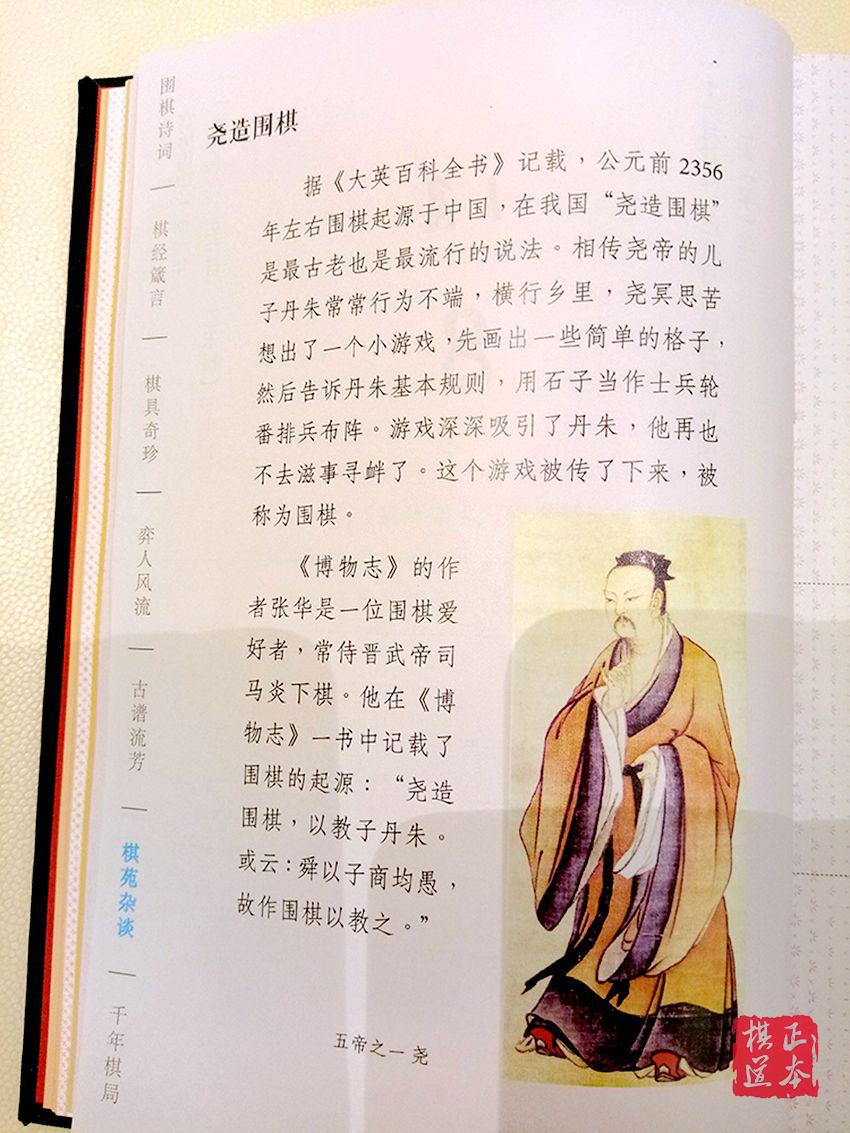 围棋诗词
棋经箴言
棋具奇珍
弈人风流
古谱流芳
棋苑杂谈
千年棋局
尧造围棋
据《大英百科全书》记载，公元前2356
年左右围棋起源于中国，在我国“尧造围棋”
是最古老也是最流行的说法。相传尧帝的儿
子丹朱常常行为不端，横行乡里，尧冥思苦
想出了一个小游戏，先画出一些简单的格子，
然后告诉丹朱基本规则，用石子当作士兵轮
番排兵布阵。游戏深深吸引了丹朱，他再也
不去滋事寻衅了。这个游戏被传了下来，被
称为围棋。
《博物志》的作
者张华是一位围棋爱
好者，常侍晋武帝司
马炎下棋。他在《博
物志》一书中记载了
围棋的起源：“尧造
围棋，以教子丹朱。
或云：舜以子商均愚，
故作围棋以教之。”
五帝之一 尧
正本
棋道